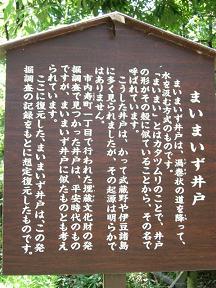 まいまいず井戸
まいまいず井戸は、渦巻状の道を降って、
水を汲む井戸のことです。
まいまいずとはカタツムリのことで、井戸
の形がその殻に似ていることから、その名で
呼ばれています。
こうした井戸は、かつて武蔵野や伊豆諸島
に多く見られましたが、その起源は明らかで
はありません。
市内寿町二丁目で行われた埋蔵文化財の発
掘調査で見つかった井戸は、平安時代のもの
ですが、まいまいず井戸に似たものとも考え
られています。
ここに復元した、まいまいず井戸は、この発
掘調査の記録をもとに想定復元したものです。